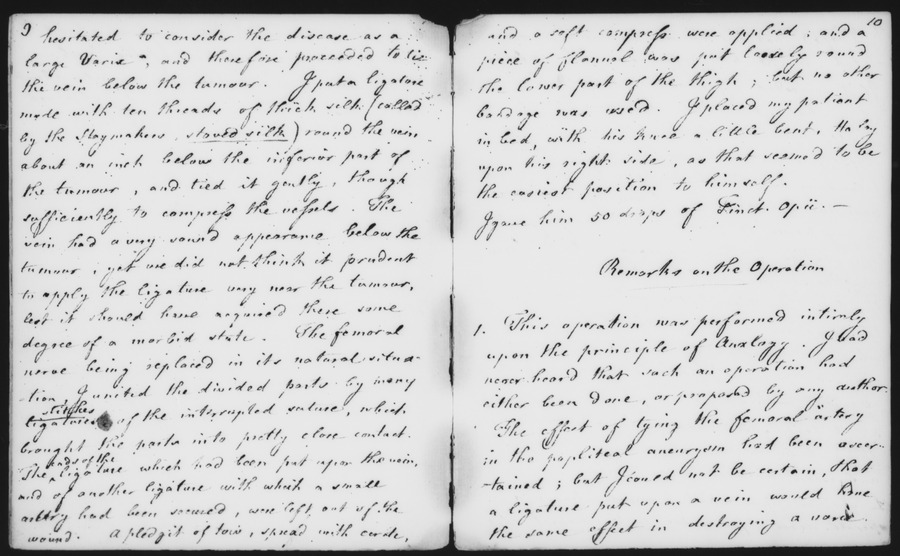 9
hesitated to consider the disease as a
large Varix, and therefore proceeded to tie
the vein below the tumour. I put a ligature
made with ten threads of thick silk (called
by the Staymakers, staved silk) round the vein
about an inch below the inferior part of
the tumour, and tied it gently, though
sufficiently to compress the vessels. The
vein had a very sound appearance below the
tumour, yet we did not think it prudent
to apply the ligature very near the tumour,
lest it should have acquired there some
degree of a morbid state. The femoral
nerve being replaced in its natural situa-
-tion I united the divided parts by many
stitches
ligatures of the interrupted suture, which
brought the parts into pretty close contact.
ends of the
The ligature which had been put upon the vein,
and of another ligature with which a small
artery had been secured, were left out of the
wound. A pledgit of tow, spread with cerate,
10
and a soft compress were applied; and a
piece of flannel was put loosely round
the lower part of the thigh; but no other
bandage was used. I placed my patient
in bed, with his knee a little bent. He lay
upon his right side, as that seemed to be
the easiest position to himself.
I gave him 50 drops of Tinct. Opii. —
Remarks on the Operation
1. This operation was performed intirely
upon the principle of Analogy. I had
never heard that such an operation had
either been done, or proposed by any author.
The effect of tying the femoral artery
in the popliteal aneurysm had been ascer-
-tained; but I could not be certain, that
a ligature put upon a vein would have
the same effect in destroying a varix